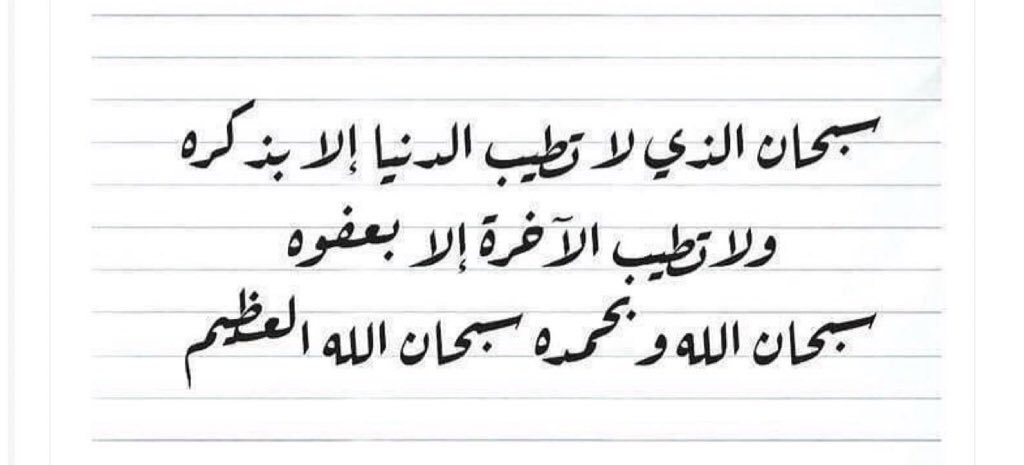 سبحان الذي لا تطيب الدنيا إلا بذكره
ولا تطيب الآخرة إلا بعفوه
سبحان الله وبحمده سبحان الله العظيم